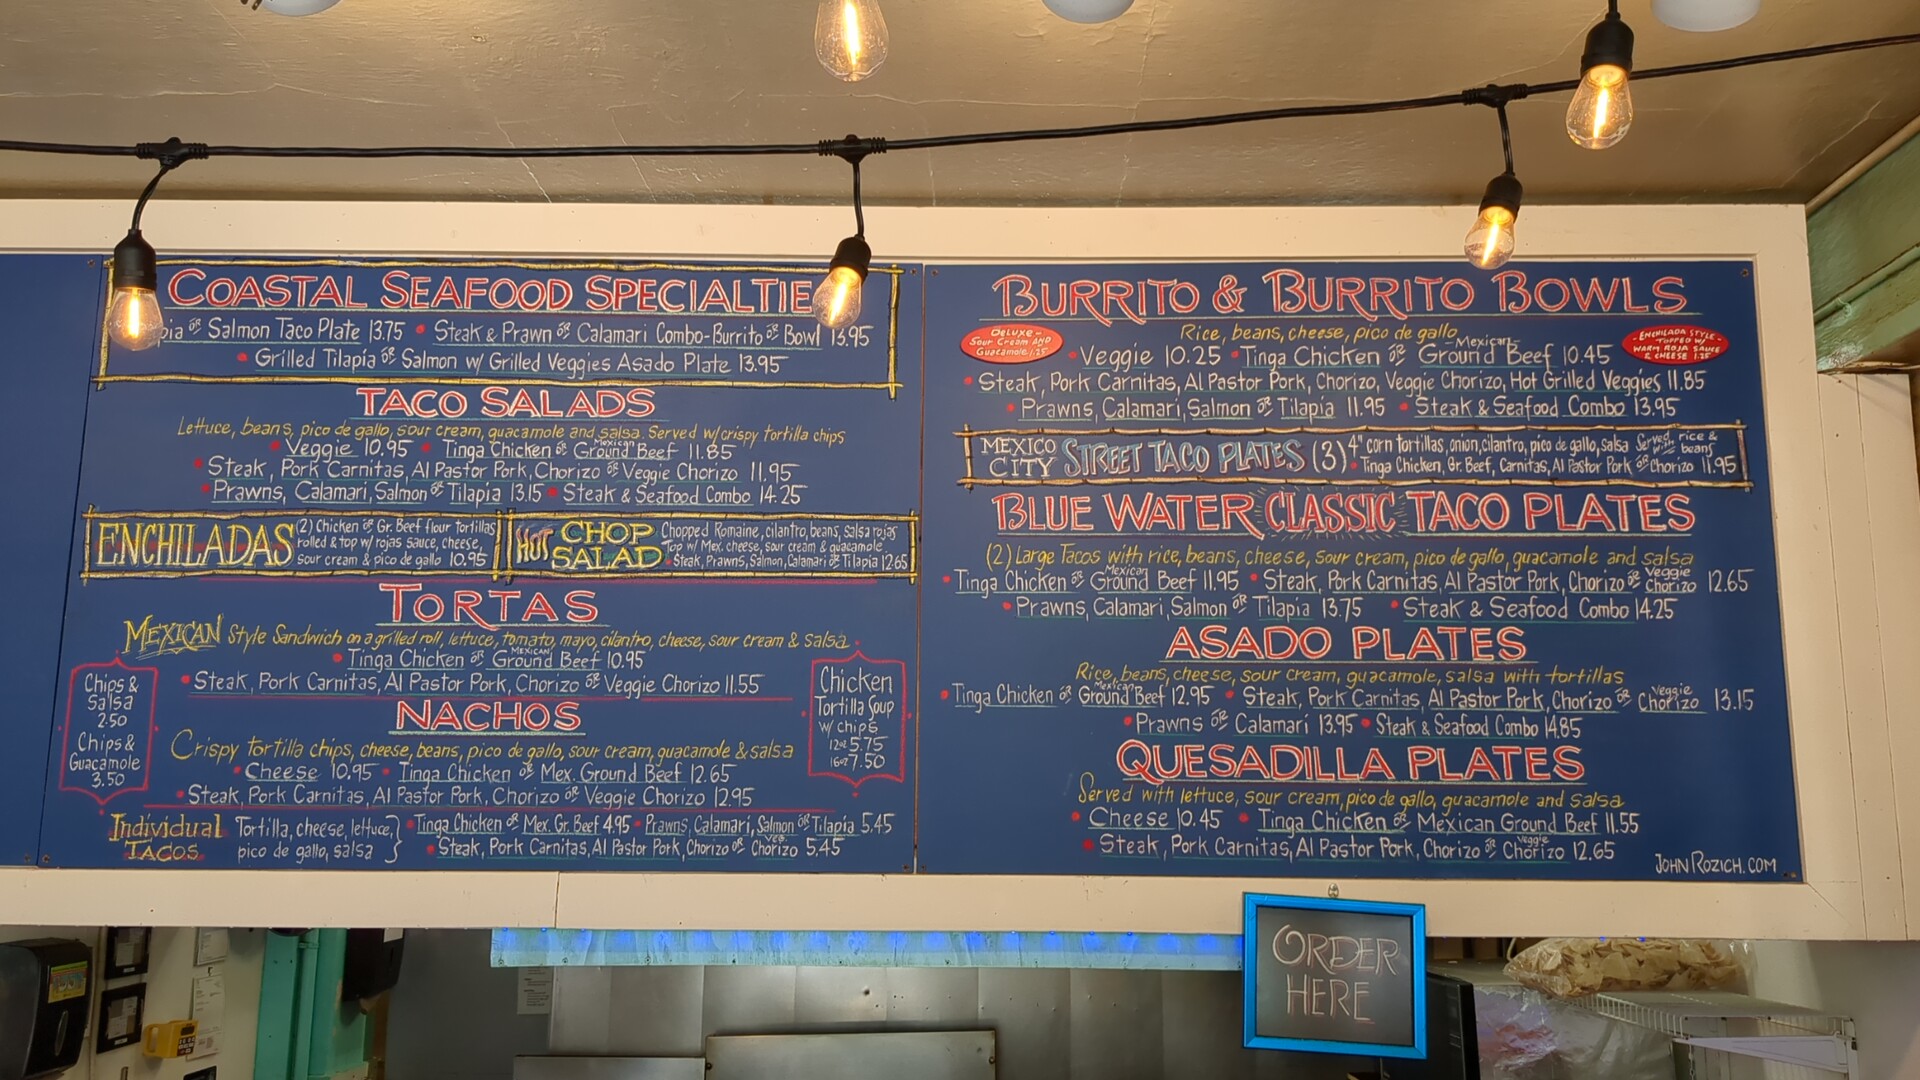 COASTAL SEAFOOD SPECIALTIE
pia or Salmon Taco Plate 13.75 • Steak & Prawn or Calamari Combo-Burrito or Bowl 13.95
• Grilled Tilapia or Salmon w/ Grilled Veggies Asado Plate 13.95
TACO SALADS
Lettuce, beans, pico de gallo, sour cream, guacamole and salsa. Served w/crispy tortilla chips
• Veggie 10.95 • Tinga Chicken or Mexican Ground Beef 11.85
• Steak, Pork Carnitas, Al Pastor Pork, Chorizo or Veggie Chorizo 11.95
• Prawns, Calamari, Salmon or Tilapia 13.15 • Steak & Seafood Combo 14.25
ENCHILADAS
(2) Chicken or Gr. Beef flour tortillas
rolled & top w/ rojas sauce, cheese,
sour cream & pico de gallo 10.95
HOT CHOP SALAD
Chopped Romaine, cilantro, beans, salsa rojas
Top w/ Mex. cheese, sour cream & guacamole
• Steak, Prawns, Salmon, Calamari or Tilapia 12.65
TORTAS
MEXICAN Style Sandwich on a grilled roll, lettuce, tomato, mayo, cilantro, cheese, sour cream & salsa
• Tinga Chicken or MEXICAN Ground Beef 10.95
• Steak, Pork Carnitas, Al Pastor Pork, Chorizo or Veggie Chorizo 11.55
Chips &
Salsa
2.50
Chips &
Guacamole
3.50
Chicken
Tortilla Soup
w/ chips
12oz 5.75
16oz 7.50
NACHOS
Crispy tortilla chips, cheese, beans, pico de gallo, sour cream, guacamole & salsa
• Cheese 10.95 • Tinga Chicken or Mex. Ground Beef 12.65
• Steak, Pork Carnitas, Al Pastor Pork, Chorizo or Veggie Chorizo 12.95
Individual
TACOS
Tortilla, cheese, lettuce,
pico de gallo, salsa
• Tinga Chicken or Mex. Gr. Beef 4.95 • Prawns, Calamari, Salmon or Tilapia 5.45
• Steak, Pork Carnitas, Al Pastor Pork, Chorizo or Veg. Chorizo 5.45
BURRITO & BURRITO BOWLS
Rice, beans, cheese, pico de gallo
DELUXE -
Sour Cream AND
Guacamole 1.25
- ENCHILADA STYLE -
TOPPED W/
WARM ROJA SAUCE
& CHEESE 1.25
• Veggie 10.25 • Tinga Chicken or Mexican Ground Beef 10.45
• Steak, Pork Carnitas, Al Pastor Pork, Chorizo, Veggie Chorizo, Hot Grilled Veggies 11.85
• Prawns, Calamari, Salmon or Tilapia 11.95 • Steak & Seafood Combo 13.95
MEXICO CITY STREET TACO PLATES (3)
4" corn tortillas, onion, cilantro, pico de gallo, salsa Served with rice & beans
• Tinga Chicken, Gr. Beef, Carnitas, Al Pastor Pork or Chorizo 11.95
BLUE WATER CLASSIC TACO PLATES
(2) Large Tacos with rice, beans, cheese, sour cream, pico de gallo, guacamole and salsa
• Tinga Chicken or Mexican Ground Beef 11.95 • Steak, Pork Carnitas, Al Pastor Pork, Chorizo or Veggie Chorizo 12.65
• Prawns, Calamari, Salmon or Tilapia 13.75 • Steak & Seafood Combo 14.25
ASADO PLATES
Rice, beans, cheese, sour cream, guacamole, salsa with tortillas
• Tinga Chicken or Mexican Ground Beef 12.95 • Steak, Pork Carnitas, Al Pastor Pork, Chorizo or Veggie Chorizo 13.15
• Prawns or Calamari 13.95 • Steak & Seafood Combo 14.85
QUESADILLA PLATES
Served with lettuce, sour cream, pico de gallo, guacamole and salsa
• Cheese 10.45 • Tinga Chicken or Mexican Ground Beef 11.55
• Steak, Pork Carnitas, Al Pastor Pork, Chorizo or Veggie Chorizo 12.65
JOHNROZICH.COM
ORDER
HERE